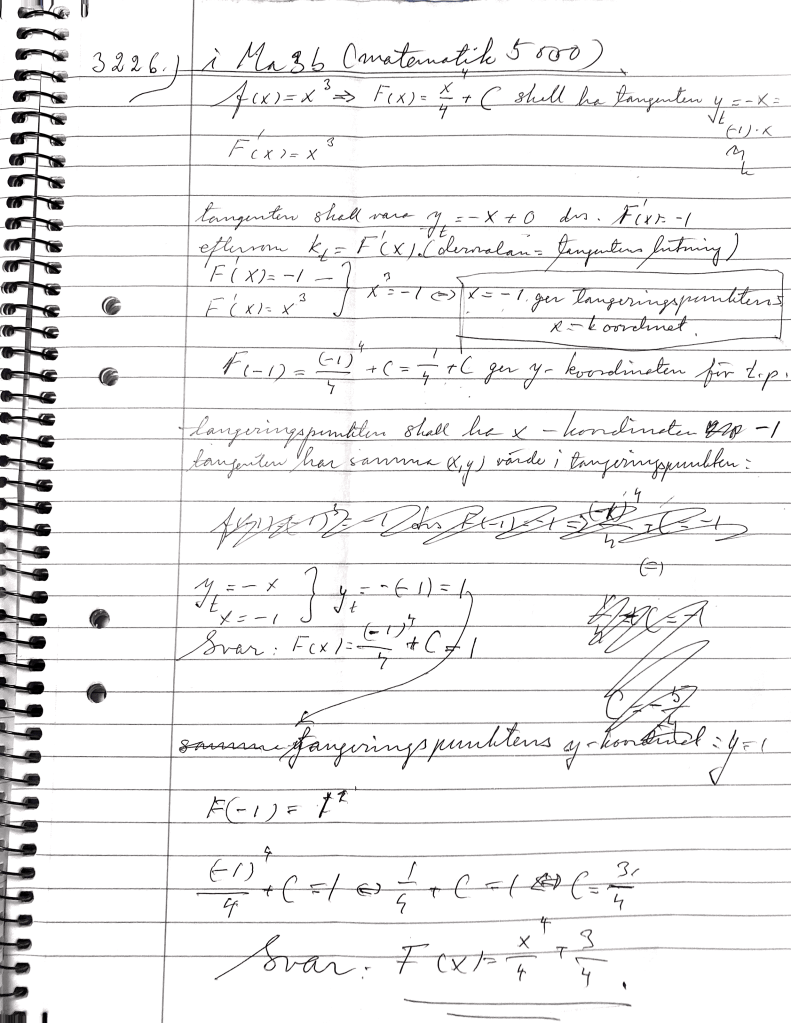 3226.) i Ma3b (matematik 5000).
f(x)=x³ ⇒ F(x)= x⁴/4 + C skall ha tangenten y_t = -x =
(-1)·x
F'(x)=x³
k
tangenten skall vara y_t = -x+0 dvs. F'(x)=-1
eftersom k_t = F'(x). (derivatan = tangentens lutning)
F'(x)=-1 } x³=-1 ⇔ x=-1 ger tangeringspunktens
F'(x)=x³ x-koordinat.
F(-1) = (-1)⁴/4 + C = 1/4 + C ger y-koordinaten för t.p.
tangeringspunkten skall ha x-koordinaten -1
tangenten har samma (x,y) värde i tangeringspunkten:
(=)
y_t = -x } y_t = -(-1) = 1
x=-1
Svar: F(x) = (-1)⁴/4 + C = 1
C = -5/4
samma tangeringspunktens y-koordinat: y=1
F(-1) = 1
(-1)⁴/4 + C = 1 ⇔ 1/4 + C = 1 ⇔ C = 3/4
Svar: F(x) = x⁴/4 + 3/4.